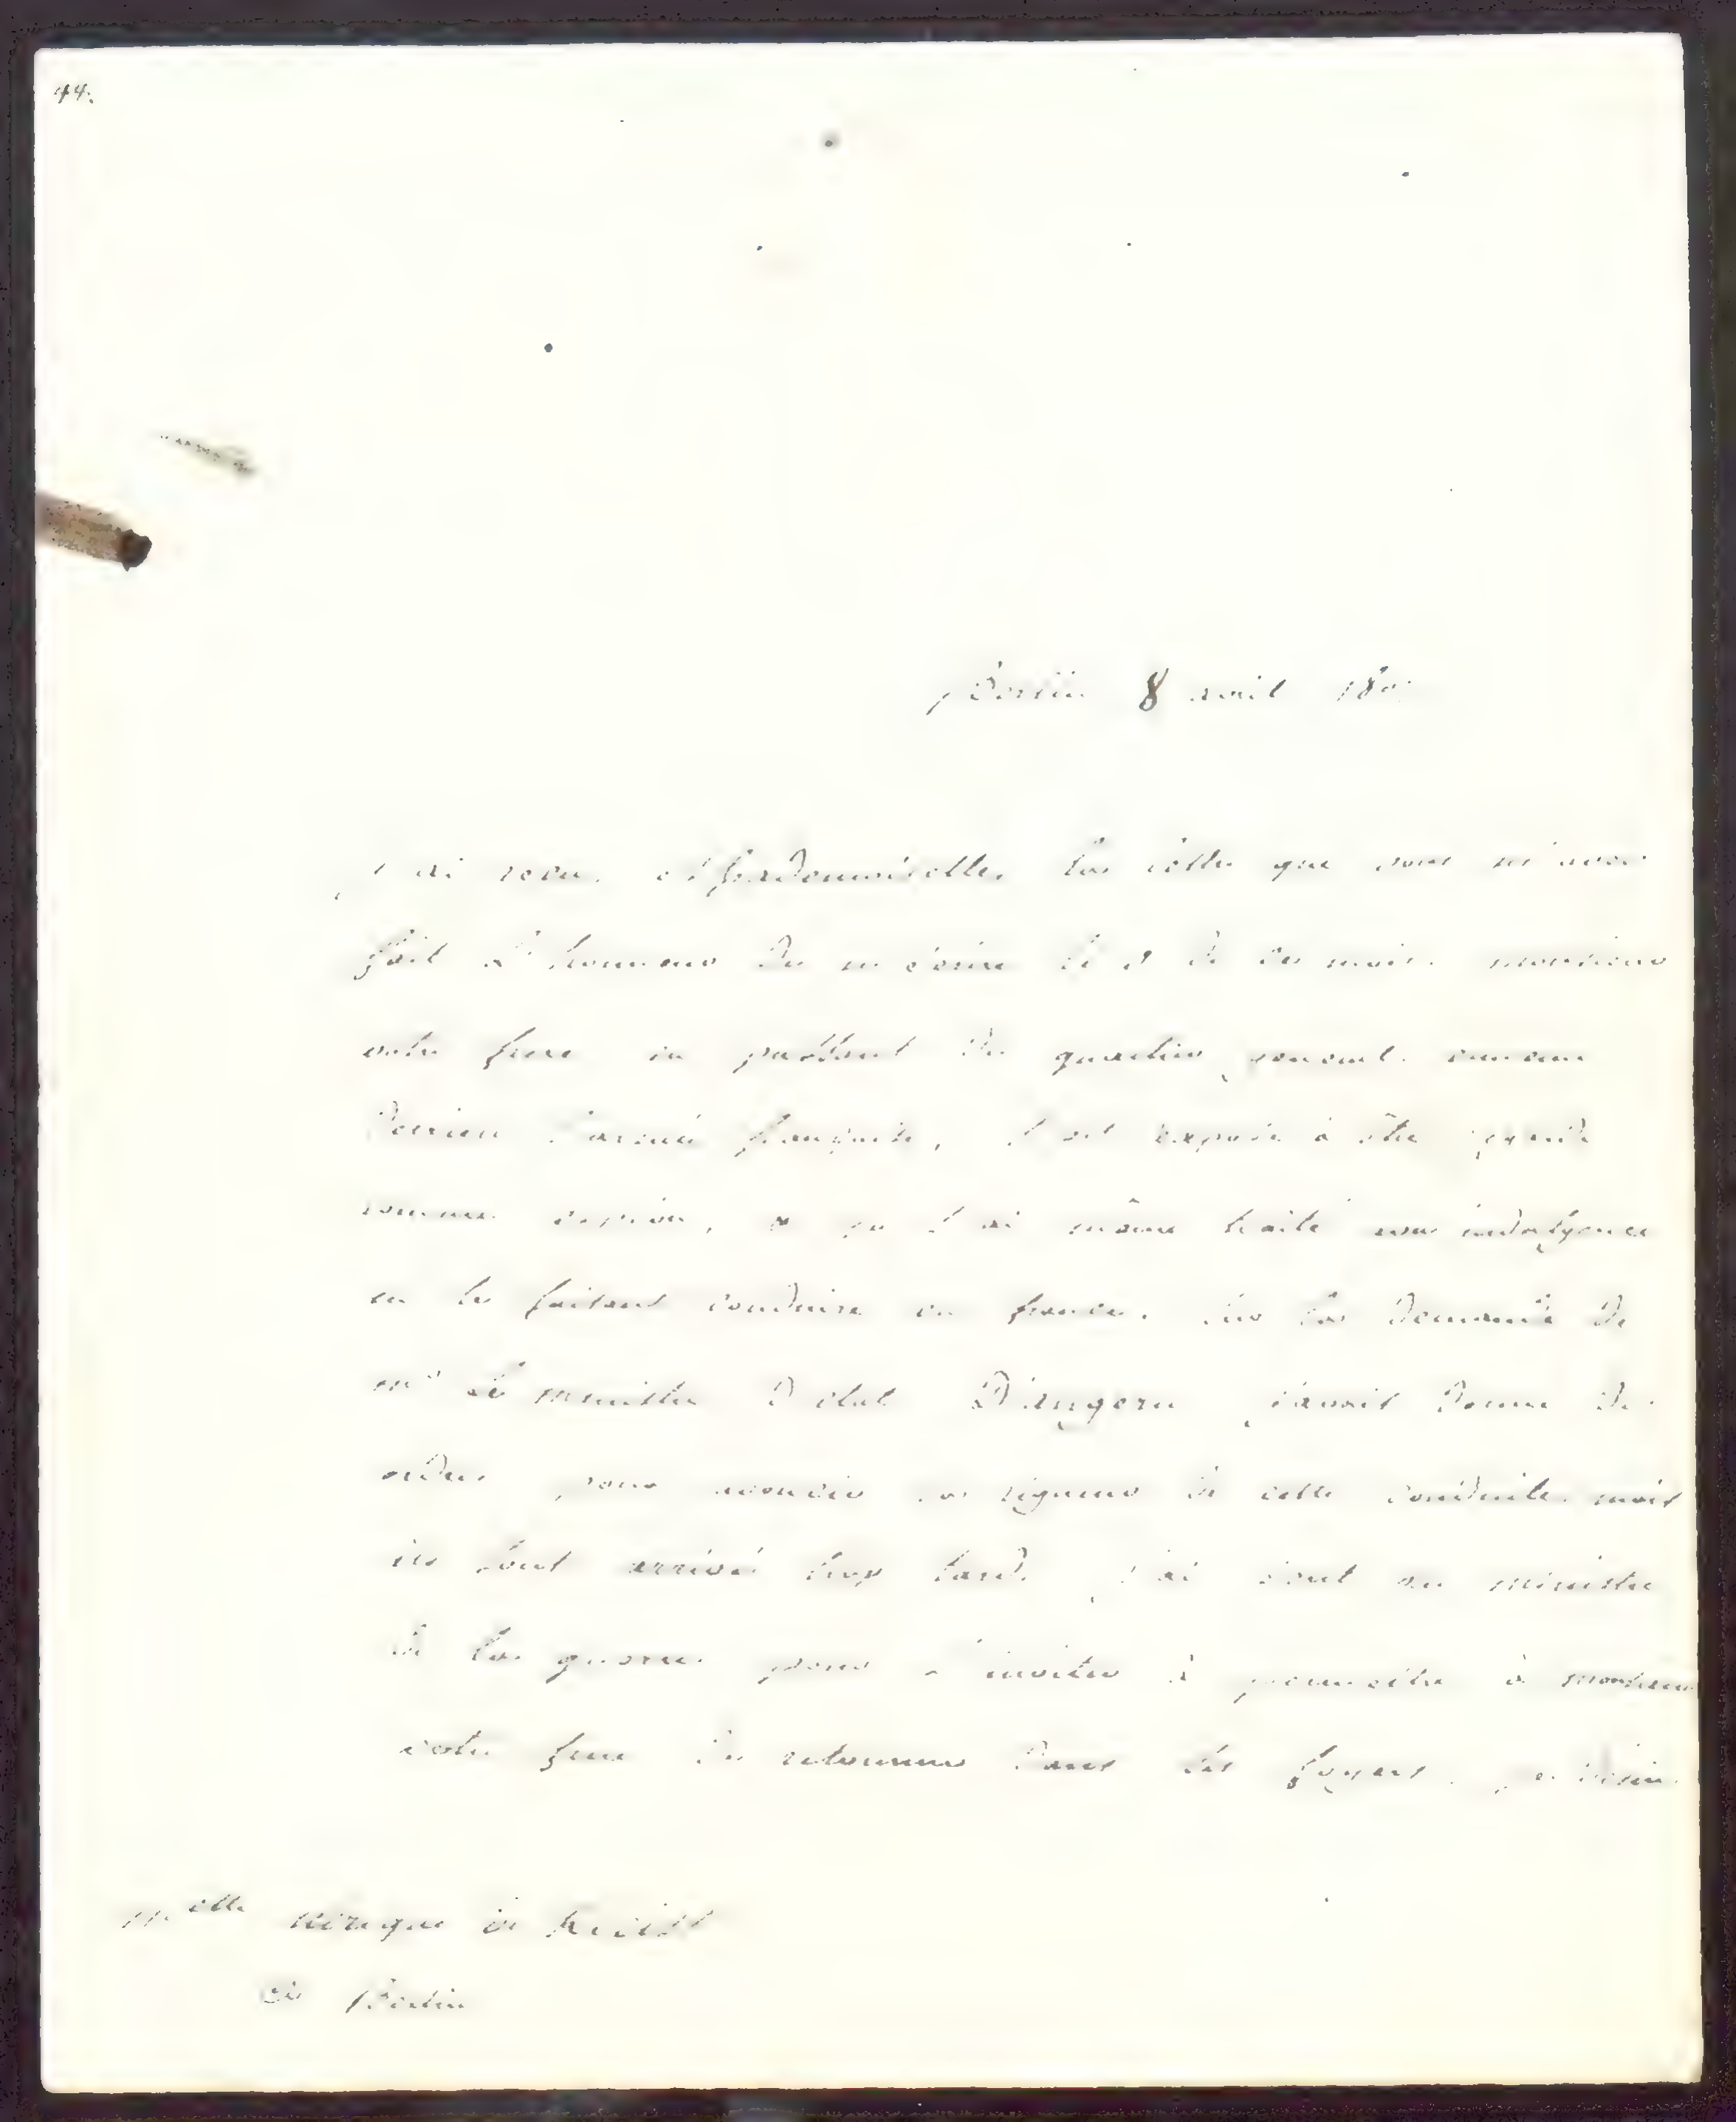 44.
Berlin 8 avril 180
j'ai reçu, Mademoiselle, la lettre que vous m'avez
fait l'honneur de m'écrire le de ce mois. monsieur
votre frere en partant du quartier general ennemi
derriere l'armée française, s'est exposé à être
comme espion, je l'ai même traité avec indulgence
en le faisant conduire en france. sur la demande de
mr le ministre d'etat D'angern j'avais donné des
ordres pour adoucir la rigueur de cette conduite mais
ils sont arrivé trop tard. j'ai écrit au ministre
de la guerre pour l'inviter à permettre à monsieur
votre frere de retourner dans ses foyers. je
Melle ulrique de Kleist
à Berlin